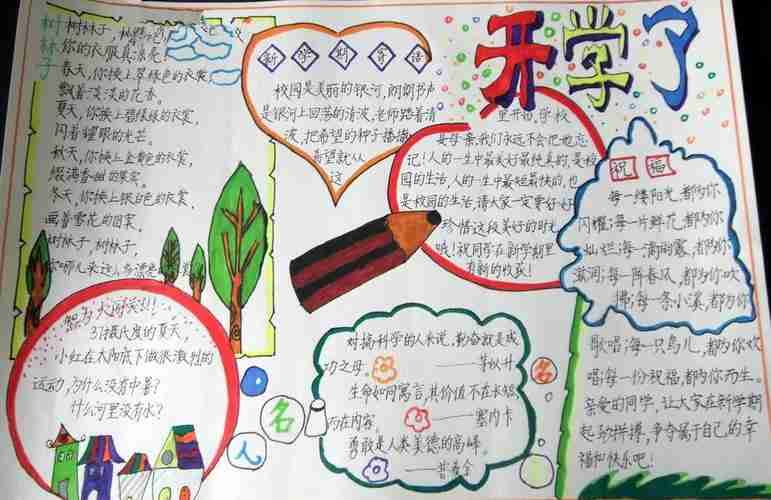 开学了
树林子
树林子,
你的衣服真漂亮!
春天,你换上翠绿色的衣裳,
飘着淡淡的花香。
夏天,你换上碧绿的衣裳,
闪着耀眼的光芒。
秋天,你换上金黄色的衣裳,
缀满香甜的果实。
冬天,你换上银白色的衣裳,
画着雪花的图案。
树林子,树林子,
新学期寄语
校园是美丽的银河,朗朗书声
是银河上回荡的清波,老师踏着清
波,把希望的种子播撒
希望就从
这
里开始,学校
是母亲,我们永远不会把他忘
记!人的一生中最美好最纯真的,是校
园的生活,人的一生中最短最快的,也
是校园的生活,请大家一定要好好
珍惜这段美好的时光
哦!祝同学在新学期里
有新的收获!
祝福
每一缕阳光,都为你
闪耀;每一片鲜花,都为你
灿烂;每一滴雨露,都为你
滋润;每一阵春风,都为你吹
拂;每一条小溪,都为你
歌唱;每一只鸟儿,都为你欢
唱;每一份祝福,都为你而生。
亲爱的同学,让大家在新学期
起努拼搏,争夺属于自己的幸
福和快乐吧!
智力大闯关!!!
37摄氏度的夏天,
小红在太阳底下做很激烈的
运动,为什么没有中暑?
什么河里没有水?
名人名言
对搞科学的人来说,勤奋就是成
功之母。
——茅以升
生命如同寓言,其价值不在长短,
而在内容。
——塞内卡
勇敢是人类美德的高峰。
——普希金